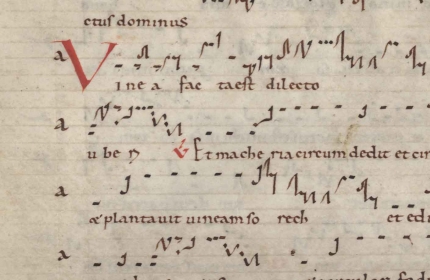 ctus dominus
a
Vinea facta est dilecto
a
u be r Et mache ria circum dedit et cir
a
& plantauit uineam so rech et edi
a